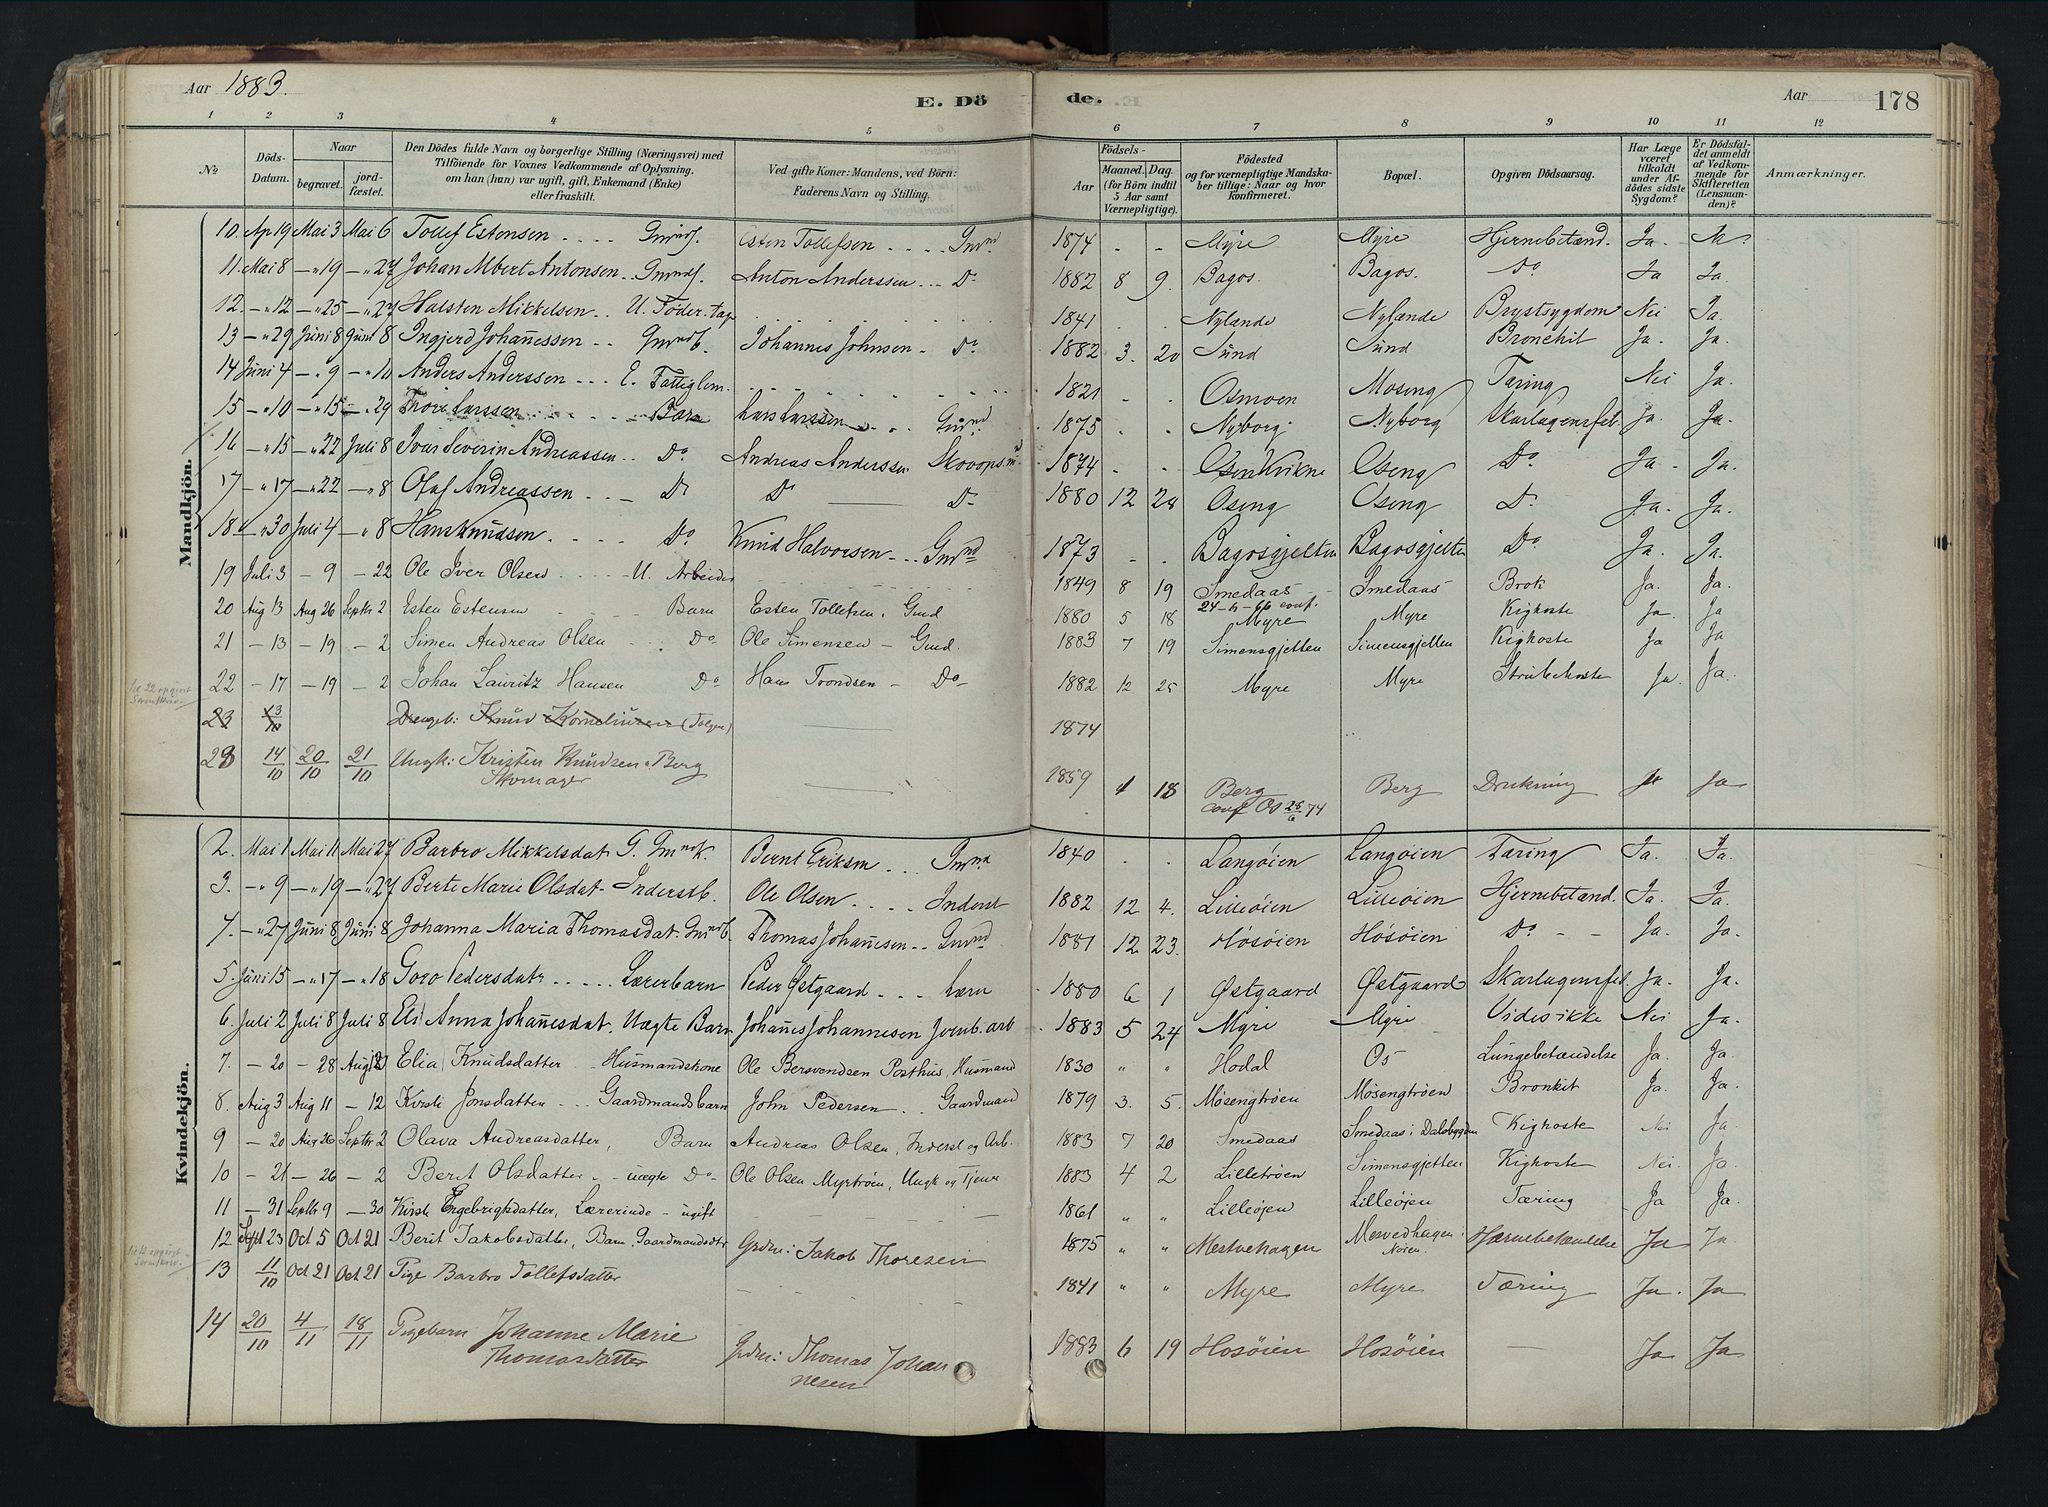 Aar 1883. E. Dö de. Aar 178
1 2 3 4 5 6 7 8 9 10 11 12
No
Döds-Datum.
Naar
begravet.
jord-fæstet.
Den Dödes fulde Navn og borgerlige Stilling (Næringsvei) med
Tilföiende for Voxnes Vedkommende af Oplysning,
om han (hun) var ugift, gift, Enkemand (Enke)
eller fraskilt.
Ved gifte Koner: Mandens, ved Börn:
Faderens Navn og Stilling.
Aar
Födsels-
Maaned. Dag.
(for Börn indtil
5 Aar samt
Værnepligtige).
Födested
og for værnepligtige Mandska-
ber tillige: Naar og hvor
konfirmeret.
Bopæl.
Opgiven Dödsaarsag.
Har Læge
været
tilkaldt
under Af-
dödes sidste
Sygdom?
Er Dödsfal-
det anmeldt
af Vedkom-
mende for
Skifteretten
(Lensman-
den)?
Anmærkninger.
Mandkjön.
10. Ap 19 Mai 3 Mai 6 Tollef Estensen .... Gmnds. Esten Tollefsen .... Gmnd 1874 - - Myre Myre Hjernebetænd. Ja -
11. Mai 8 - " 19 - " 27 Johan Albert Antonsen .. Gmnds. Anton Anderssen ... Do 1882 8 9. Bagos. Bagos. Do Ja Ja.
12. - " 12 - " 25 - " 27 Halsten Mikkelsen .. U. Föder. 1841 . . Nylænde Nylænde Brystsygdom Nei Ja.
13 - " 29 Juni 8 Juni 8 Ingjerd Johanessen .. Gmndb. Johannes Johnsen - Do 1882 3. 20 Sund Sund Bronchit Ja. Ja.
14 Juni 4 - " 9 - " 10 Anders Anderssen ... E. Fattiglem. 1821 . . Osmoen Moseng Tæring Nei Ja.
15 - " 10 - " 15 - " 29 Thore Larssen Barn Lars Larssen Gmnd 1875 . . Nyborg. Nyborg Skarlagensfeb. Ja. Ja.
16 - " 15 - " 22 Juli 8 Ivar Severin Andreassen .. Do Andreas Anderssen Skovops.md 1874 - - Osen Kvikne Oseng Do Ja. Ja.
17 - " 17 - " 22 - " 8 Olaf Andreassen ... Do Do Do 1880 12 28 Oseng Oseng Do Ja. Ja.
18 - " 30 Juli 4 - " 8 Hans Knudsen .... Do Knud Halvorsen .. Gmnd 1873 - - Bagosgjelten Bagosgjelten Do Ja. Ja.
19 Juli 3 - 9 - 22 Ole Iver Olsen ..... U. Arbeider 1849 8 19 Smedaas Smedaas Brok Ja. Ja.
24-6-66 conf.
20 Aug 13 Aug 26 Septr 2 Esten Estensen Barn Esten Tollefsen. Gmd 1880 5 18 Myre Myre Kighoste Ja Ja
21 - 13 - 19 - 2 Simen Andreas Olsen Do Ole Simensen - Gmd. 1883 7 19 Simensgjetten Simensgjetten Kighoste Ja Ja
22 - 17 - 19 - 2 Johan Lauritz Hansen Do Hans Trondsen - Do 1882 12 25 Myre Myre Strubehoste Ja. Ja.
23 13/10 Drengeb: Knud Korneliusen (Tolgen) 1874
23 14/10 20/10 21/10 Ungk: Kristen Knudsen Berg
Skomager 1859 4 18 Berg Berg Drukning Ja Ja
conf Os 28/6 74
Kvindekjön.
2. Mai 1 Mai 11 Mai 27 Barbro Mikkelsdat G. Gmndk. Bernt Eriksen ... Gmnd 1840 . . Langøien Langøien Tæring Ja. Ja.
3. - " 9 - " 19 - " 27 Berte Marie Olsdat Inderstb. Ole Olsen .... Inderst 1882 12 4. Lilleøien Lilleøien Hjernebetænd. Ja. Ja.
- " 27 Juni 8 Juni 8 Johanna Maria Thomasdat. Gmndb. Thomas Johanesen .. Gmnd 1881 12 23. Hosøien Hosøien Do - - Ja. Ja.
5. Juni 15 - " 17 - " 18 Goro Pedersdatr ..... Lærerbarn Peder Østgaard ... Lærer 1880 6 1 Østgaard Østgaard Skarlagensfeb. Ja. Ja.
6. Juli 2 Juli 8 Juli 8 Eli Anna Johanesdat. Uægte Barn Johanes Johannesen Jernb. arb 1883 5 24 Myre Myre Vides ikke Nei Ja.
7. - 20 - 28 Aug Elia Knudsdatter .. Husmandskone Ole Bersvendsen Posthus, Husmand 1830 " " Hodal Os Lungebetændelse Ja. Ja.
8. Aug 3 Aug 11 - 12 Kirsti Jonsdatter ... Gaardmandsbarn John Pedersen .. Gaardmand 1879 3. 5. Møsengtrøen Møsengtrøen Bronkit Ja. Ja.
9 - 20 Aug 26 Septr 2 Olava Andreasdatter, Barn Andreas Olsen, Inderst og Arb. 1883 7 20 Smedaas Smedaas i Dalsbygden Kighoste Nei Ja.
10 - 21 - 26 - 2 Berit Olsdatter - uægte Do Ole Olsen Myrtrøen, Ungk og Tjener 1883 4 2 Lilletrøen Simensgjetten Kighoste Nei. Ja.
11 - 31 Septbr 9 - 30 Kirsti Engebrigtsdatter, Lærerinde - ugift 1861 " " Lilleøjen Lilleøjen Tæring Ja Ja.
12 Sept 23 Oct 5 Oct 21 Berit Jakobsdatter, Barn Gaardmandsdtr Grdm: Jakob Thoresen 1875 " " Mestvehagen Mesvedhagen:
Nøien Hjærnebetændelse Ja Ja
13 11/10 Oct 21 Oct 21 Pige Barbro Tollefsdatter 1841 " " Myre Myre Tæring Ja. Ja
14 20/10 4/11 18/11 Pigebarn Johanne Marie
Thomasdatter Grdm: Thomas Johan
nesen 1883 6 19 Hosøien Hosøien - Ja Ja